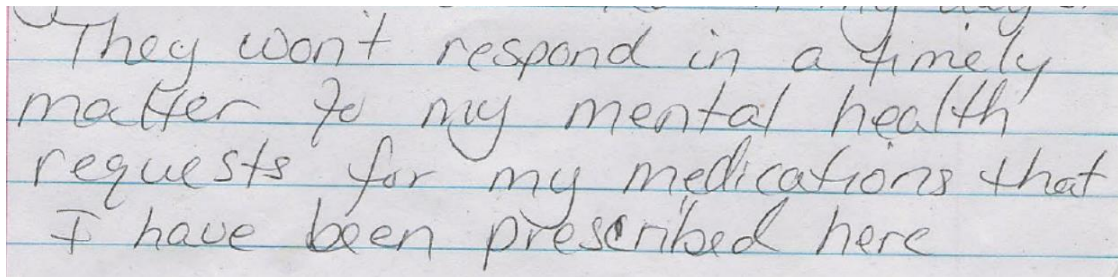 They won't respond in a timely
matter to my mental health
requests for my medications that
I have been prescribed here